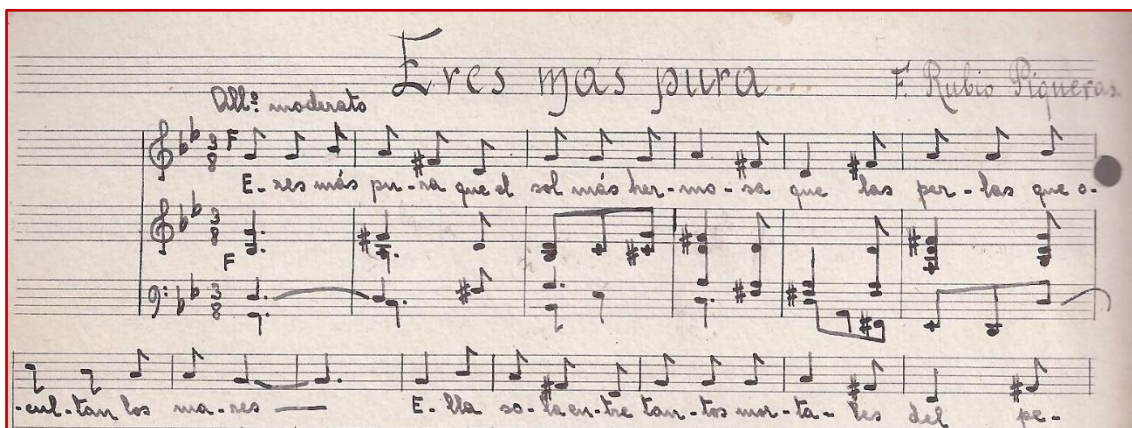 Eres mas pura...
F. Rubio Piqueras.
All.º moderato
F
E-res más pu-ra que el sol más her-mo-sa que las per-las que o-
F
-cul-tan los ma-res — E-lla so-la en-tre tan-tos mor-ta-les del pe-